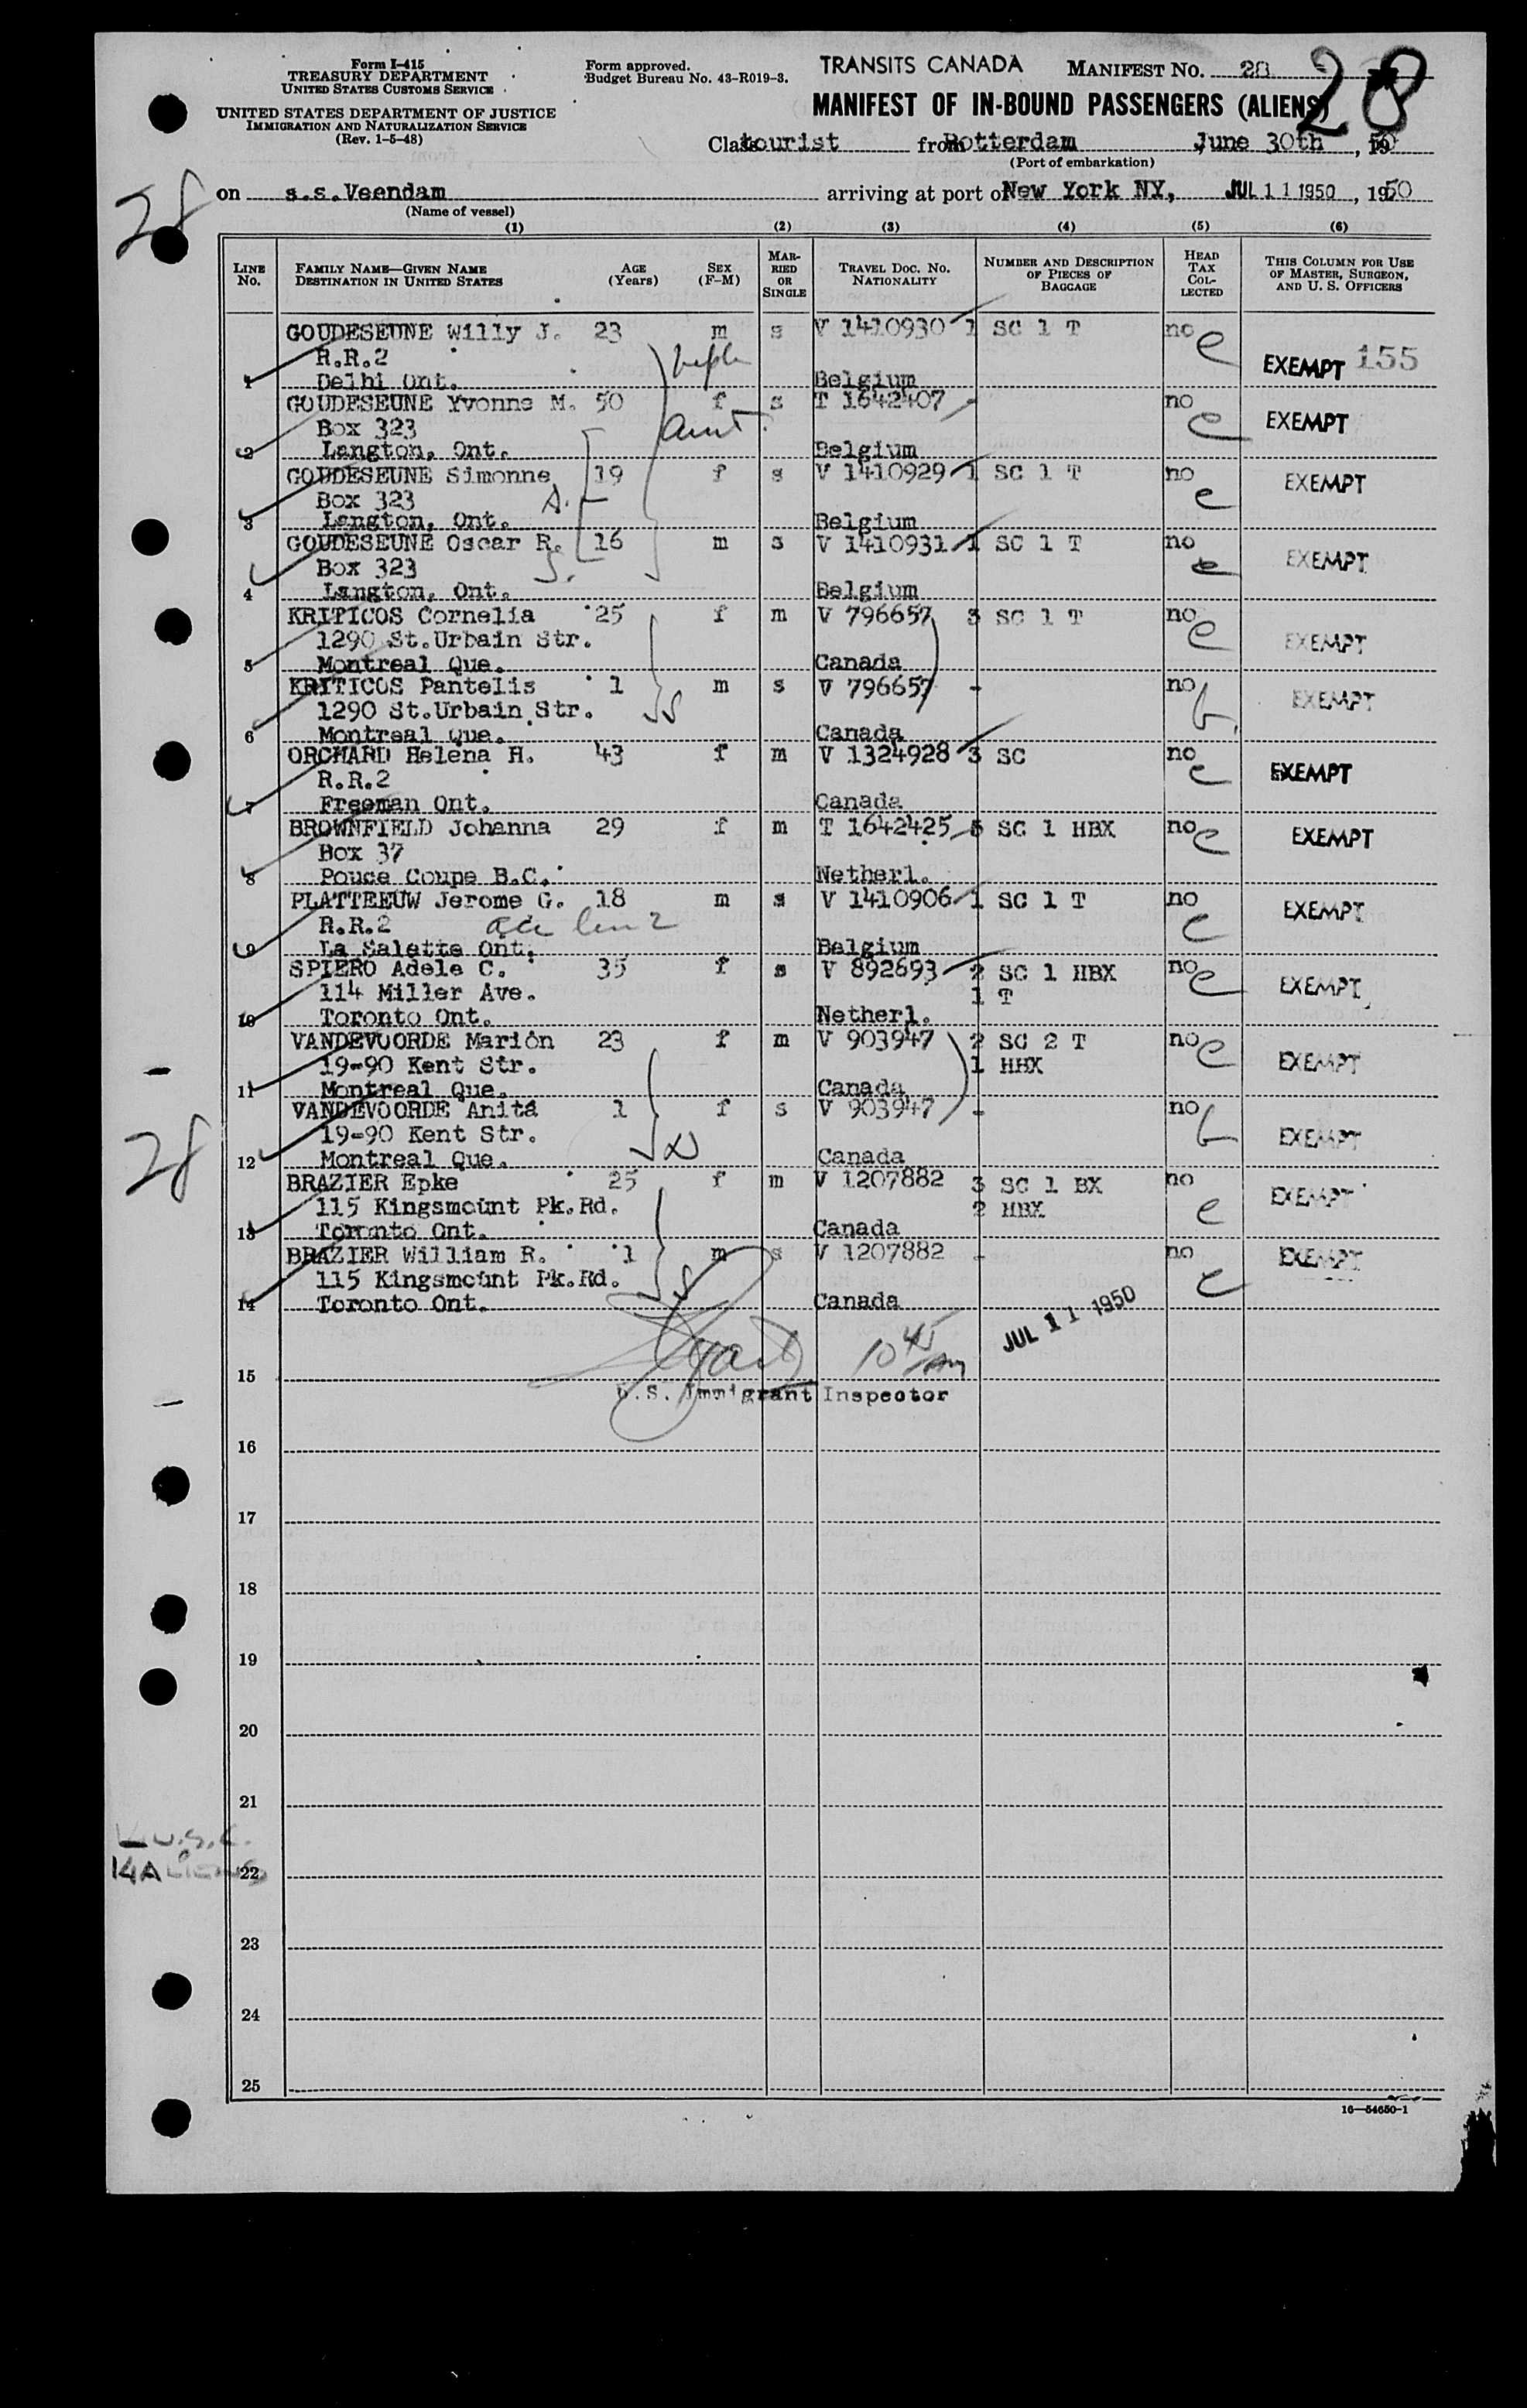 Form I-415
TREASURY DEPARTMENT
UNITED STATES CUSTOMS SERVICE
UNITED STATES DEPARTMENT OF JUSTICE
IMMIGRATION AND NATURALIZATION SERVICE
(Rev. 1-5-48)
Form approved.
Budget Bureau No. 43-R019-3.
TRANSITS CANADA MANIFEST NO. 28
28
MANIFEST OF IN-BOUND PASSENGERS (ALIENS)
Class tourist from Rotterdam June 30th, 1950
(Port of embarkation)
28
on s.s.Veendam arriving at port of New York NY, JUL 11 1950, 1950
(Name of vessel)
(1) (2) (3) (4) (5) (6)
LINE No. FAMILY NAME—GIVEN NAME DESTINATION IN UNITED STATES AGE (Years) SEX (F-M) MARRIED OR SINGLE TRAVEL DOC. NO. NATIONALITY NUMBER AND DESCRIPTION OF PIECES OF BAGGAGE HEAD TAX COLLECTED THIS COLUMN FOR USE OF MASTER, SURGEON, AND U. S. OFFICERS
GOUDESEUNE Willy J. 23 m s V 1410930 1 SC 1 T no e
R.R.2 neph EXEMPT 155
1 Delhi Ont. Belgium
GOUDESEUNE Yvonne M. 50 f s T 1642407 - no e
Box 323 aunt EXEMPT
2 Langton, Ont. Belgium
GOUDESEUNE Simonne 19 f s V 1410929 1 SC 1 T no e EXEMPT
Box 323
3 Langton, Ont. Belgium
GOUDESEUNE Oscar R. 16 m s V 1410931 1 SC 1 T no e EXEMPT
Box 323
4 Langton, Ont. Belgium
KRITICOS Cornelia 25 f m V 796657 3 SC 1 T no e
1290 St.Urbain Str. EXEMPT
5 Montreal Que. Canada
KRITICOS Pantelis 1 m s V 796657 - no
1290 St.Urbain Str. EXEMPT
6 Montreal Que. Canada
ORCHARD Helena H. 43 f m V 1324928 3 SC no e
R.R.2 EXEMPT
7 Freeman Ont. Canada
BROWNFIELD Johanna 29 f m T 1642425 5 SC 1 HBX no e EXEMPT
Box 37
8 Pouce Coupe B.C. Netherl.
PLATTEEUW Jerome G. 18 m s V 1410906 1 SC 1 T no e EXEMPT
R.R.2
9 La Salette Ont. Belgium
SPIERO Adele C. 35 f s V 892693 2 SC 1 HBX no e
114 Miller Ave. 1 T EXEMPT
10 Toronto Ont. Netherl.
VANDEVOORDE Marion 23 f m V 903947 2 SC 2 T no e
19-90 Kent Str. 1 HBX EXEMPT
11 Montreal Que. Canada
VANDEVOORDE Anita 1 f s V 903947 - no
19-90 Kent Str. EXEMPT
28
12 Montreal Que. Canada
BRAZIER Epke 25 f m V 1207882 3 SC 1 BX no e EXEMPT
115 Kingsmount Pk.Rd. 2 HBX
13 Toronto Ont. Canada
BRAZIER William R. 1 m s V 1207882 - no e EXEMPT
115 Kingsmount Pk.Rd.
14 Toronto Ont. Canada
JUL 11 1950
10 45 AM
15
U.S. Immigrant Inspector
16
17
18
19
20
21
U.S.C.
14 ALIENS
22
23
24
25
16—54650-1